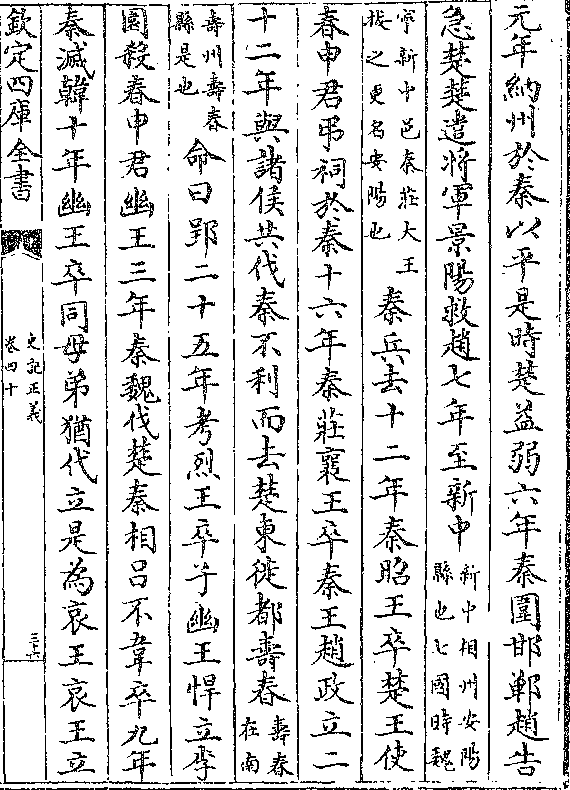 元年納州於秦以平是時楚益弱六年秦圍邯鄲趙告
急楚楚遣將軍景陽救趙七年至新中
新中相州安陽
縣也七國時魏
寧新中邑秦莊大王
拔之更名安陽也
秦兵去十二年秦昭王卒楚王使
春申君弔祠於秦十六年秦莊襄王卒秦王趙政立二
十二年與諸侯共伐秦不利而去楚東徙都壽春
壽春
在南
壽州壽春
縣是也
命曰郢二十五年考烈王卒子幽王悍立李
園殺春申君幽王三年秦魏伐楚秦相呂不韋卒九年
秦滅韓十年幽王卒同母弟猶代立是為哀王哀王立
欽定四庫全書
史記正義
卷四十
三十六